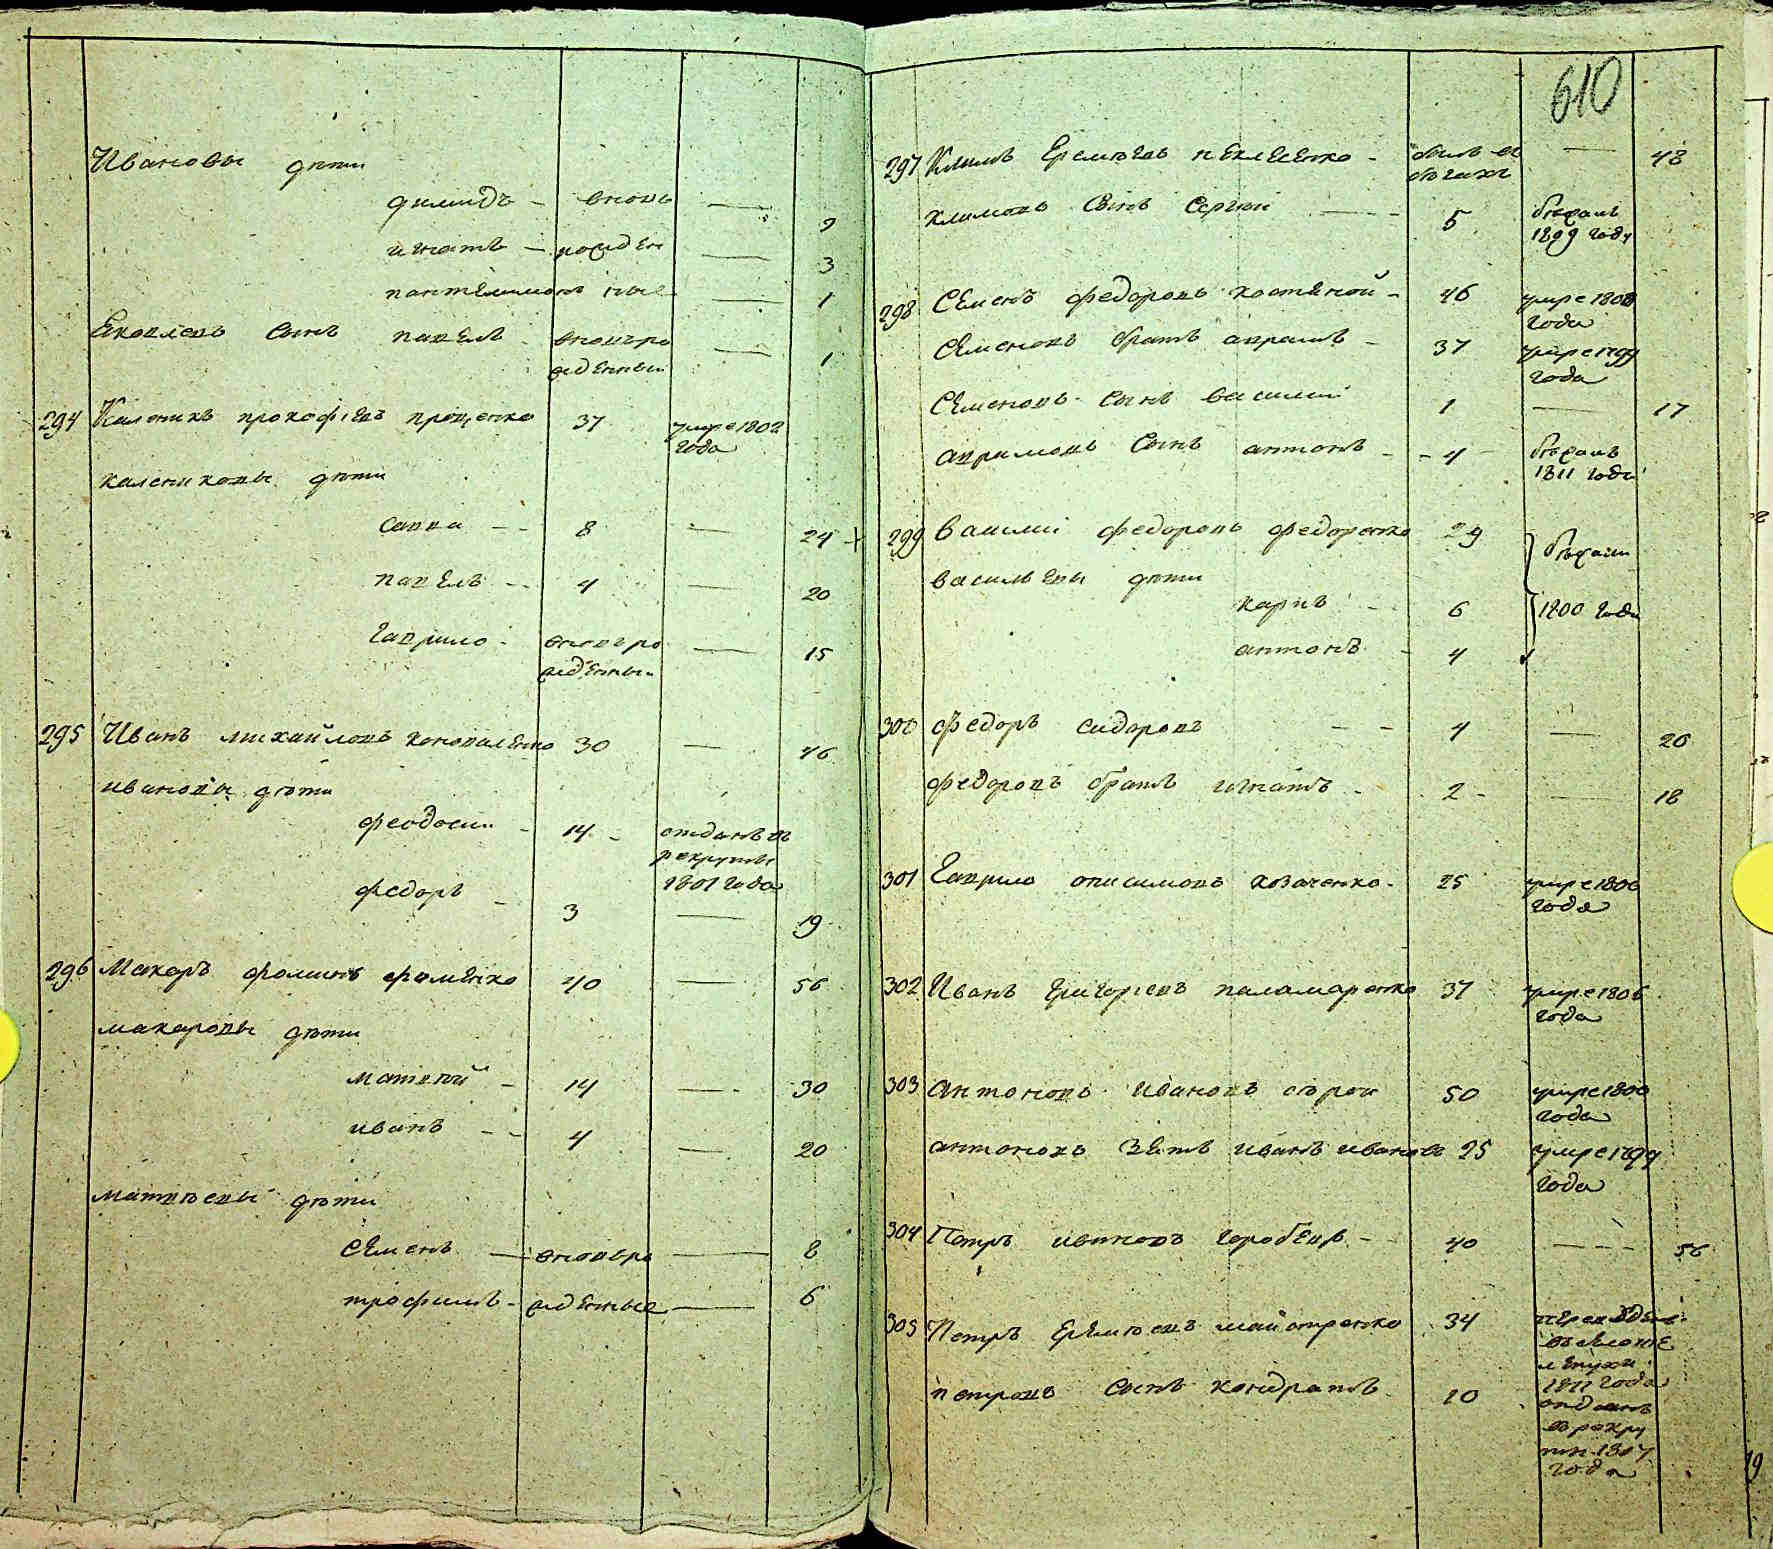 Ивановы дѣти
димидъ - вновь — 9
игнатъ - рожден — 3
пантелимонъ ные — 1
Яковлевъ сынъ павелъ - вновьро — 1
жденный
294 Каленикъ прокофіевъ проценко 37 умре 1802
года
калениковы дѣти
савва - - 8 — 24
павелъ - - 4 — 20
гаврило - вновьро — 15
жденны
295 Иванъ михайловъ коноваленко 30 — 46
ивановы дѣти
феодосии - 14 - отданъ въ
рекруты
1801 года
федоръ - 3 — 19
296 Макаръ фоминъ фоменко 40 — 56
макаровы дѣти
матвѣй - 14 — 30
иванъ - - 4 — 20
матвѣевы дѣти
семенъ — вновьро — 8
трофимъ - жденные — 6
610
297 Климъ Еремѣевъ - былъ въ — 48
бѣгахъ
климовъ сынъ сергѣй - - - 5 бѣжалъ
1809 году
298 Семенъ федоровъ костяной - 46 умре 1808
года
Семеновъ братъ аврамъ - 37 умре 1799
года
Семеновъ сынъ василий 1 — 17
аврамовъ сынъ антонъ - - 4 - бѣжалъ
1811 году
299 Василий федоровъ федоренко 29 бѣжали
васильевы дѣти
карпъ - 6 1800 году
антонъ - 4
300 федоръ сидоровъ - - 4 — 20
федоровъ братъ игнатъ - - 2 - — 18
301 Гаврило онисимовъ козаченко - 25 умре 1806
года
302 Иванъ григориевъ паламаренко 37 умре 1806
года
303 антоновъ ивановъ сѣрой 50 умре 1800
года
антоновъ зять иванъ ивановъ 25 умре 1799
года
304 Петръ ивановъ горобецъ - - 40 - - - - 56
305 Петръ Еремѣевъ майстренко 34 переведенъ
въ селение
лепухи
1811 года
петровъ сынъ кондратъ 20 отданъ
в рекру
ты 1807
года
19